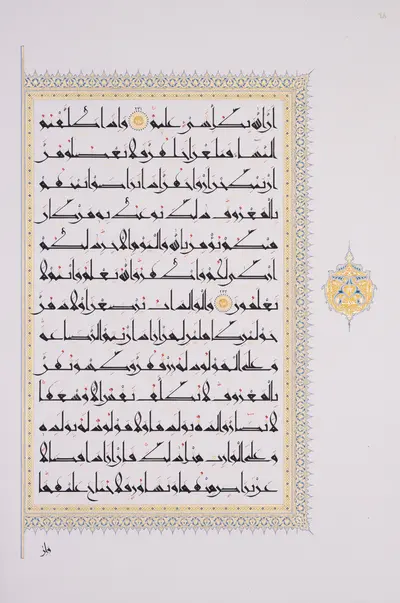 ان الله بكل شيء عليم واذا طلقتم
النساء فبلغن اجلهن فلا تعضلوهن
ان ينكحن ازواجهن اذا تراضوا بينهم
بالمعروف ذلك يوعظ به من كان
منكم يؤمن بالله واليوم الاخر ذلكم
ازكى لكم واطهر والله يعلم وانتم لا
تعلمون والوالدات يرضعن اولادهن
حولين كاملين لمن اراد ان يتم الرضاعة
وعلى المولود له رزقهن وكسوتهن
بالمعروف لا تكلف نفس الا وسعها
لا تضار والدة بولدها ولا مولود له بولده
وعلى الوارث مثل ذلك فان ارادا فصالا
عن تراض منهما وتشاور فلا جناح عليهما
وان